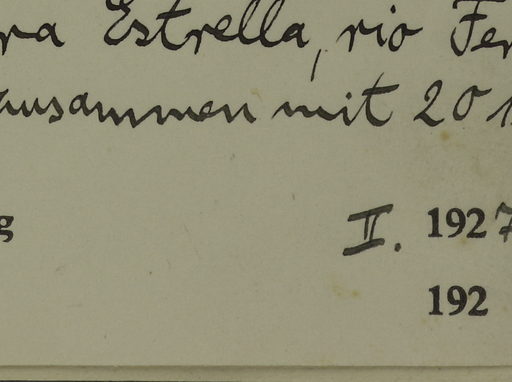 ra Estrella, rio Fer
zusammen mit 20
g II. 1927
192